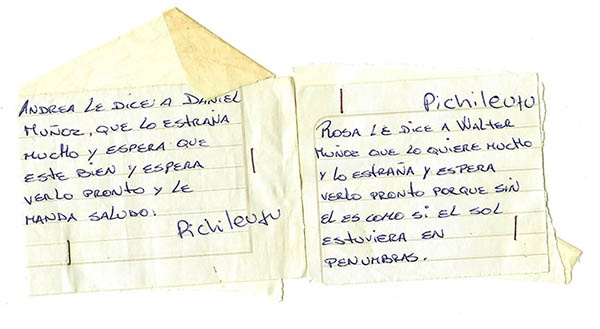 ANDREA LE DICE A DANIEL
MUÑOZ, QUE LO ESTRAÑA
MUCHO Y ESPERA QUE
ESTE BIEN Y ESPERA
VERLO PRONTO Y LE
MANDA SALUDO.
Pichileufu
Pichileufu
ROSA LE DICE A WALTER
MUÑOZ QUE LO QUIERE MUCHO
Y LO ESTRAÑA Y ESPERA
VERLO PRONTO PORQUE SIN
EL ES COMO SI EL SOL
ESTUVIERA EN
PENUMBRAS.